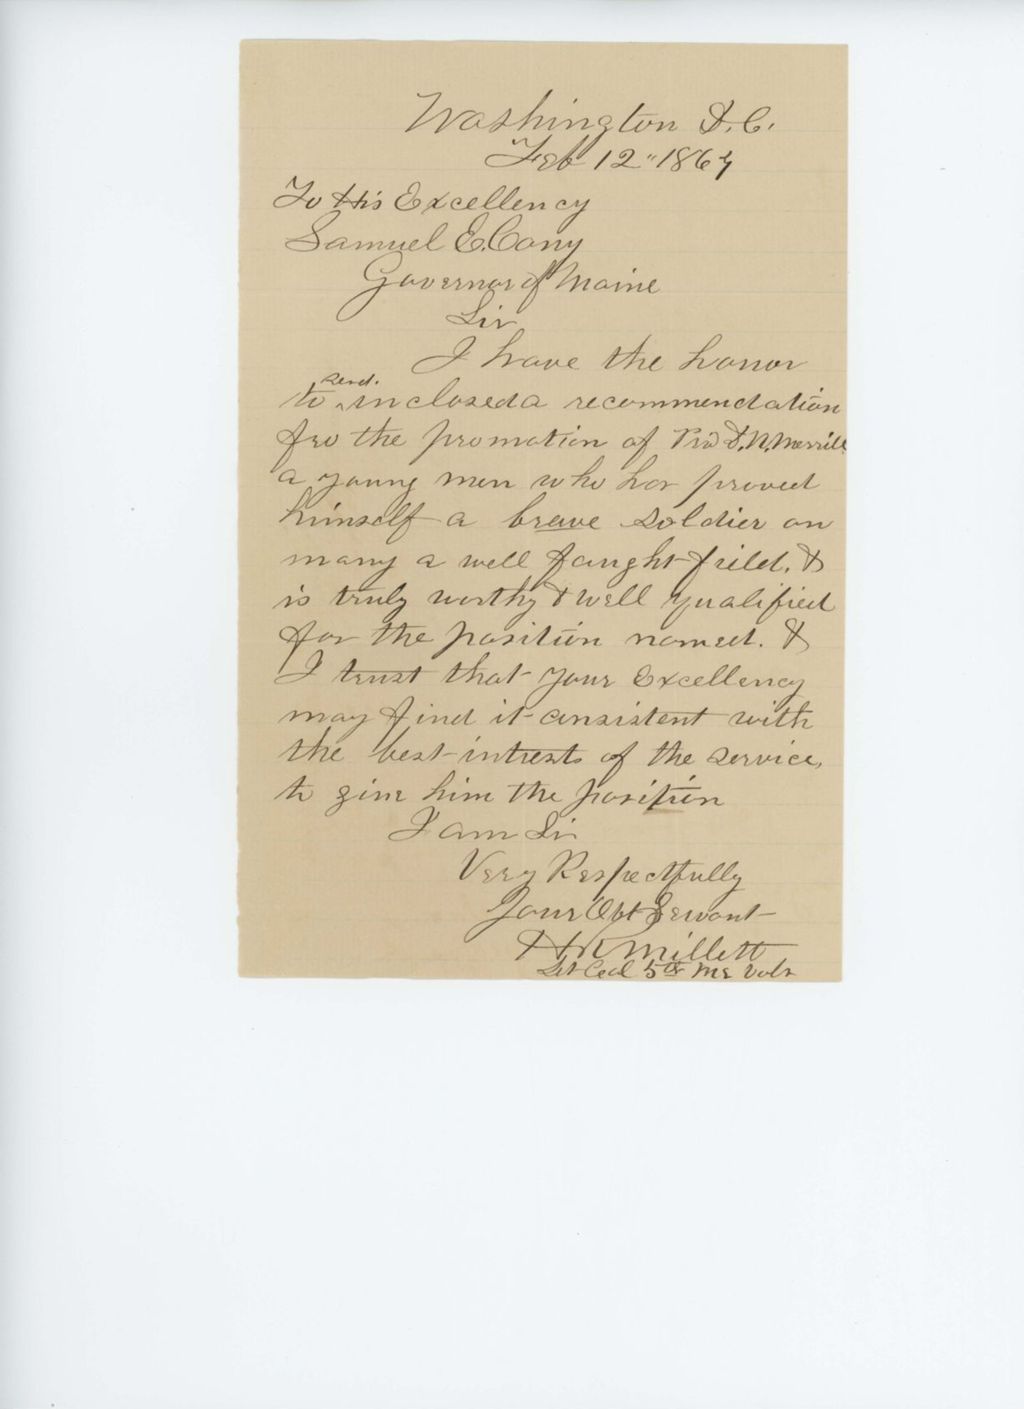 Washington D.C.
Feb 12" 1864
To His Excellency
Samuel E. Cony
Governor of Maine
Sir
I have the honor
send.
to ^ inclosed a recommendation
fro the promotion of Priv D. N. Merrill
a young man who has proved
himself a brave soldier on
many a well faught field. &
is truly worthy & well qualified
for the position named. &
I trust that your Excellency
may find it consistent with
the best intrests of the service,
to give him the position
I am Sir
Very Respectfully
Your Obt Servant
H R Millett
Lt Col 5th Me Vols